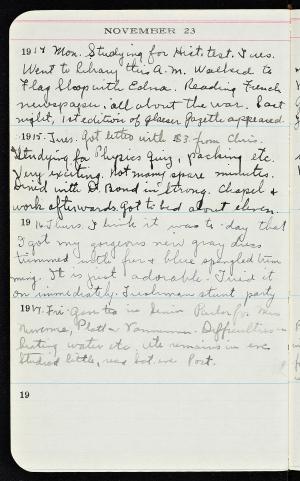 NOVEMBER 23
1914 Mon. Studying for Hist. test. Tues.
Went to library this A.M. Walked to
Flag Shop with Edna. Reading French
newspaper, all about the war. Last
night, 1st edition of Gazette appeared.
1915. Tues. Got letter with $3 from Chris.
Studying for Physics quiz, packing etc.
Very exciting. Not many spare minutes.
Dined with D. Bond in Strong. Chapel &
work afterwards. Got to bed about eleven.
1916 Thurs. I think it was to-day that
I got my gorgeous new gray dress
trimmed with fur & blue spangled trim
ming. It is just adorable. Tried it
on immediately. Freshman stunt party
1917. Fri. Gen tea in Senior Parlor for Miss
Platt & Difficulties in
heating water etc. We remains in eve
Studied little, read but Post.
19